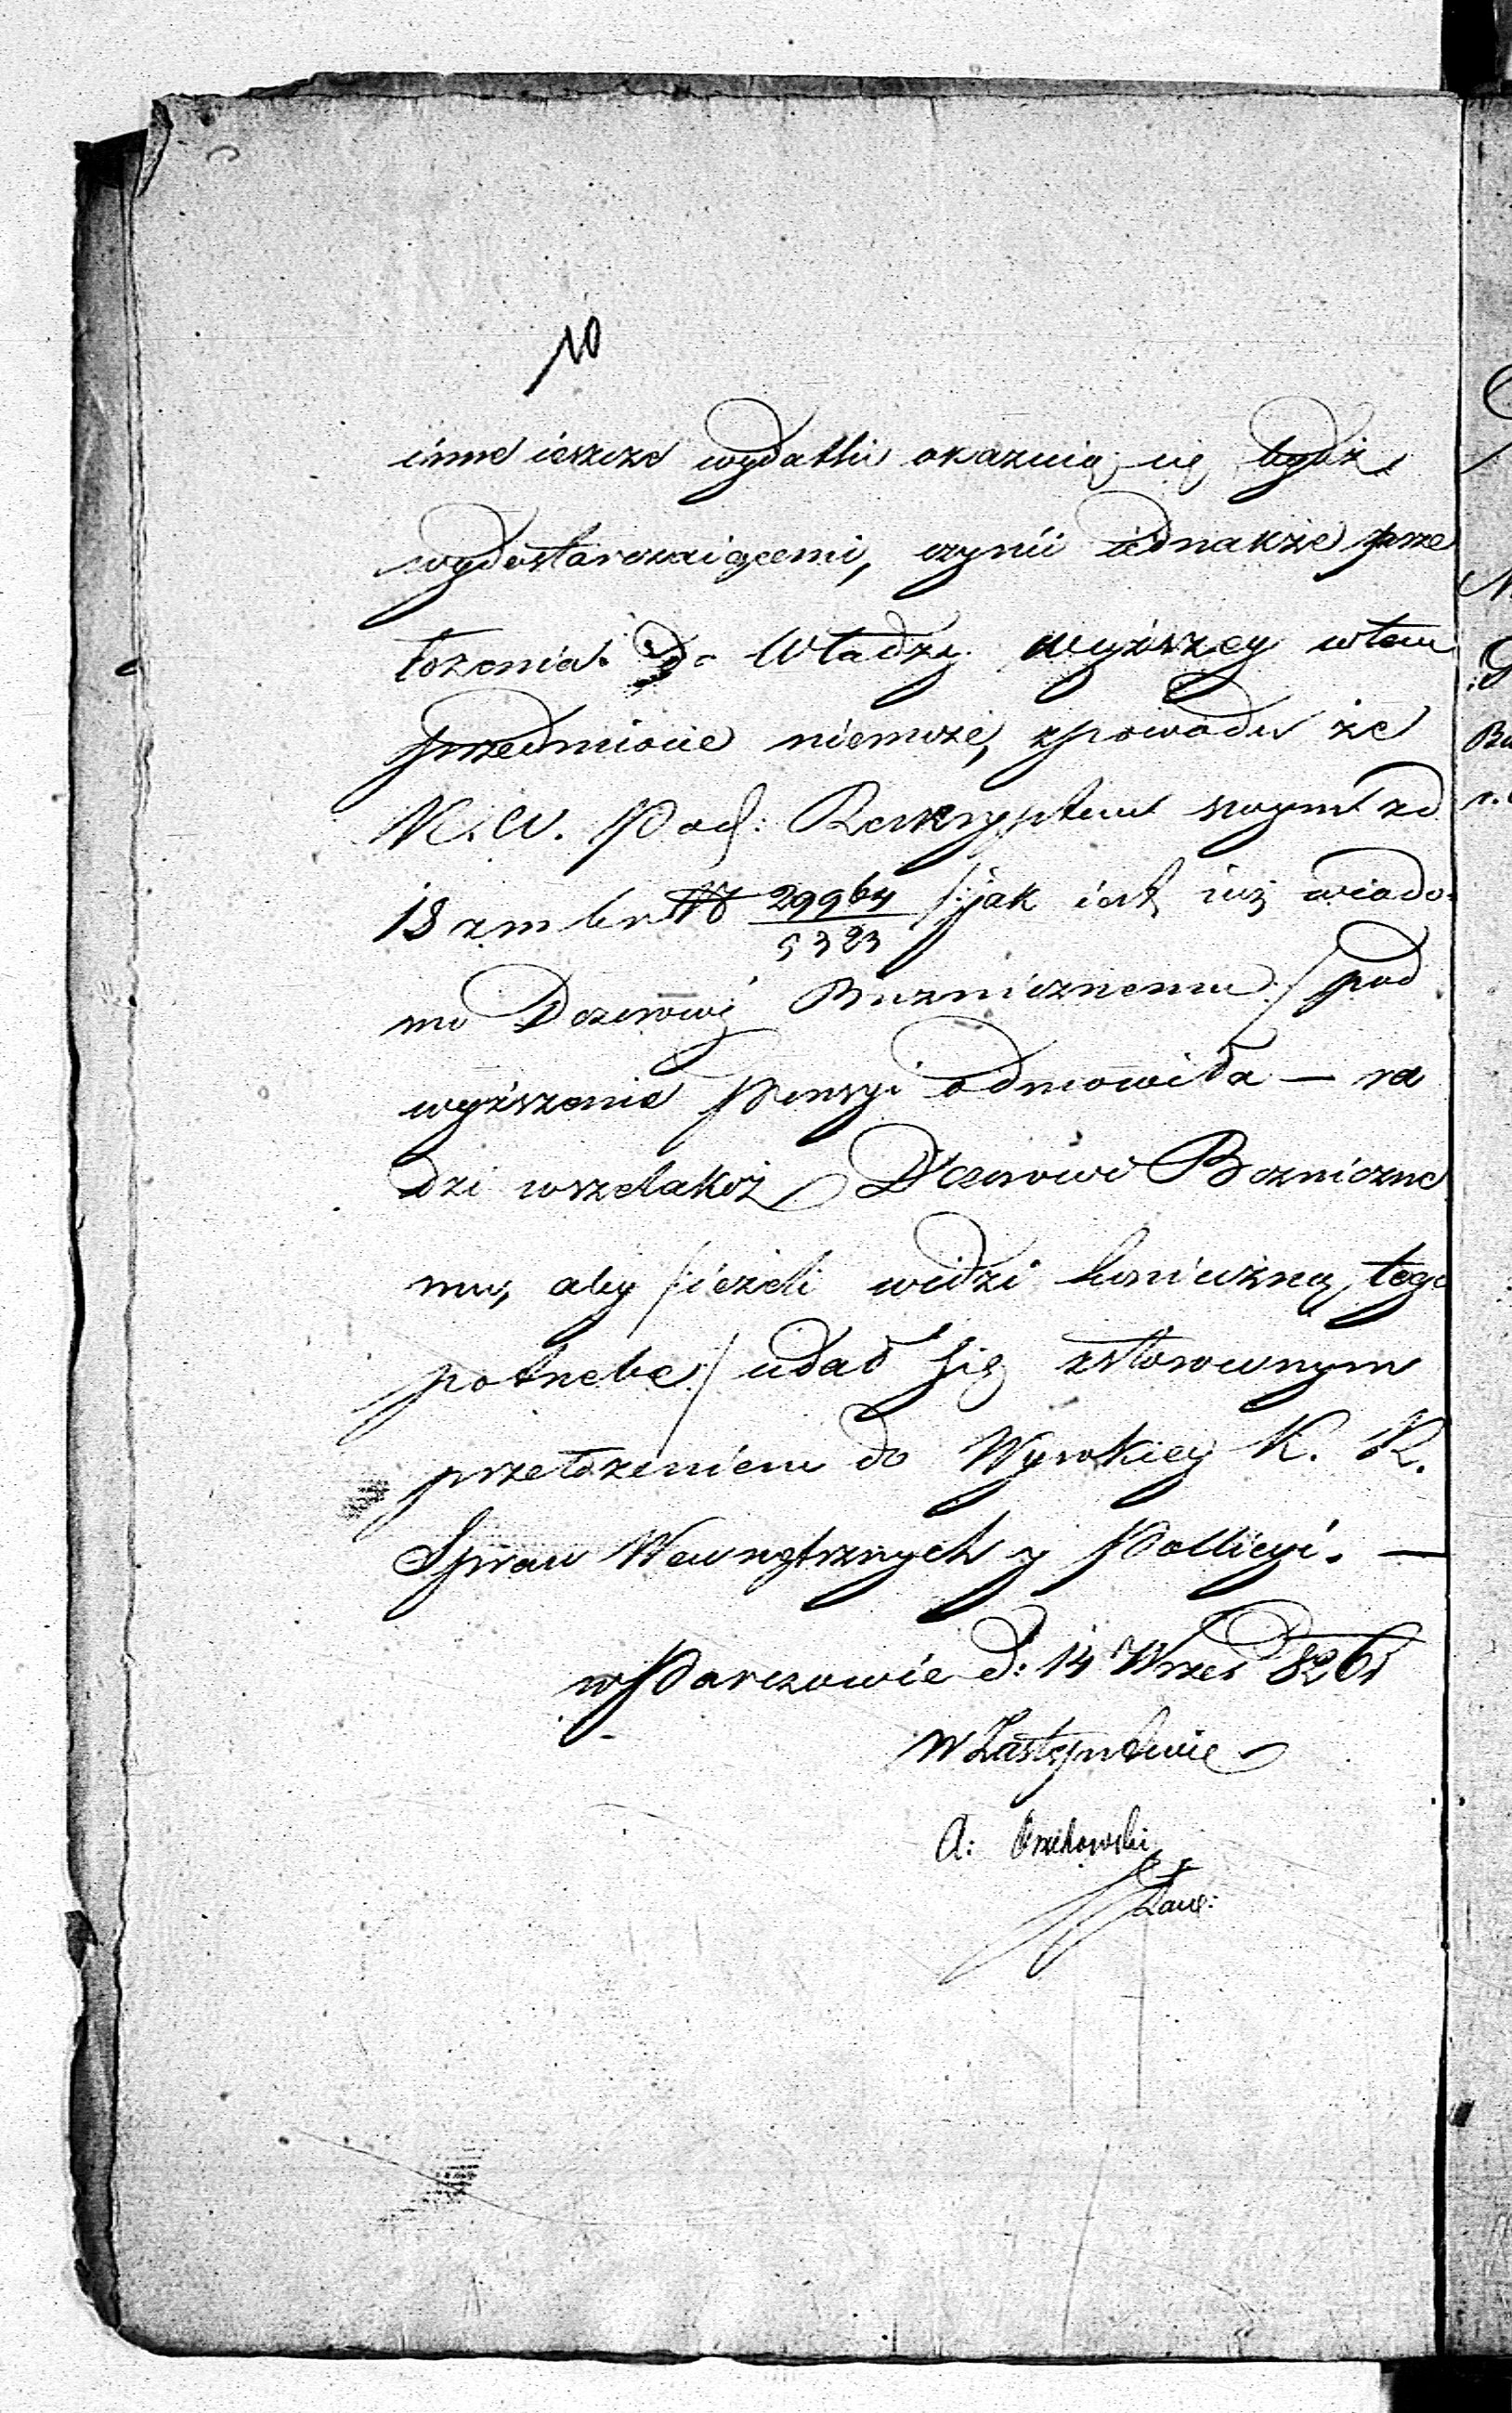 10
inne ieszcze wydatki okazuią się bydź
wydostarczaiącemi, czynić iednakże prze
łożenia do Władzy wyższey w tem
przedmiocie niemoże, z powodu że
K. W. Pod: Reskryptem swym z d
18 z m b r № 29964/5323 /:jak iest iuż wiado-
mo Dozorowi Buznicznemu:/ pod
wyższenie pensyi odmówiła — ra
dzi wszelakoż Dozorowi Bozniczne
mu, aby /:ieżeli widzi konieczną tego
potrzebe:/ udał się z stosownym
przełożeniem do Wysokiey K. R.
Spraw Wewnętrznych y Pollicyi. —
w Parczewie d: 14 Wrzes 826 r
w Zastępstwie
A: